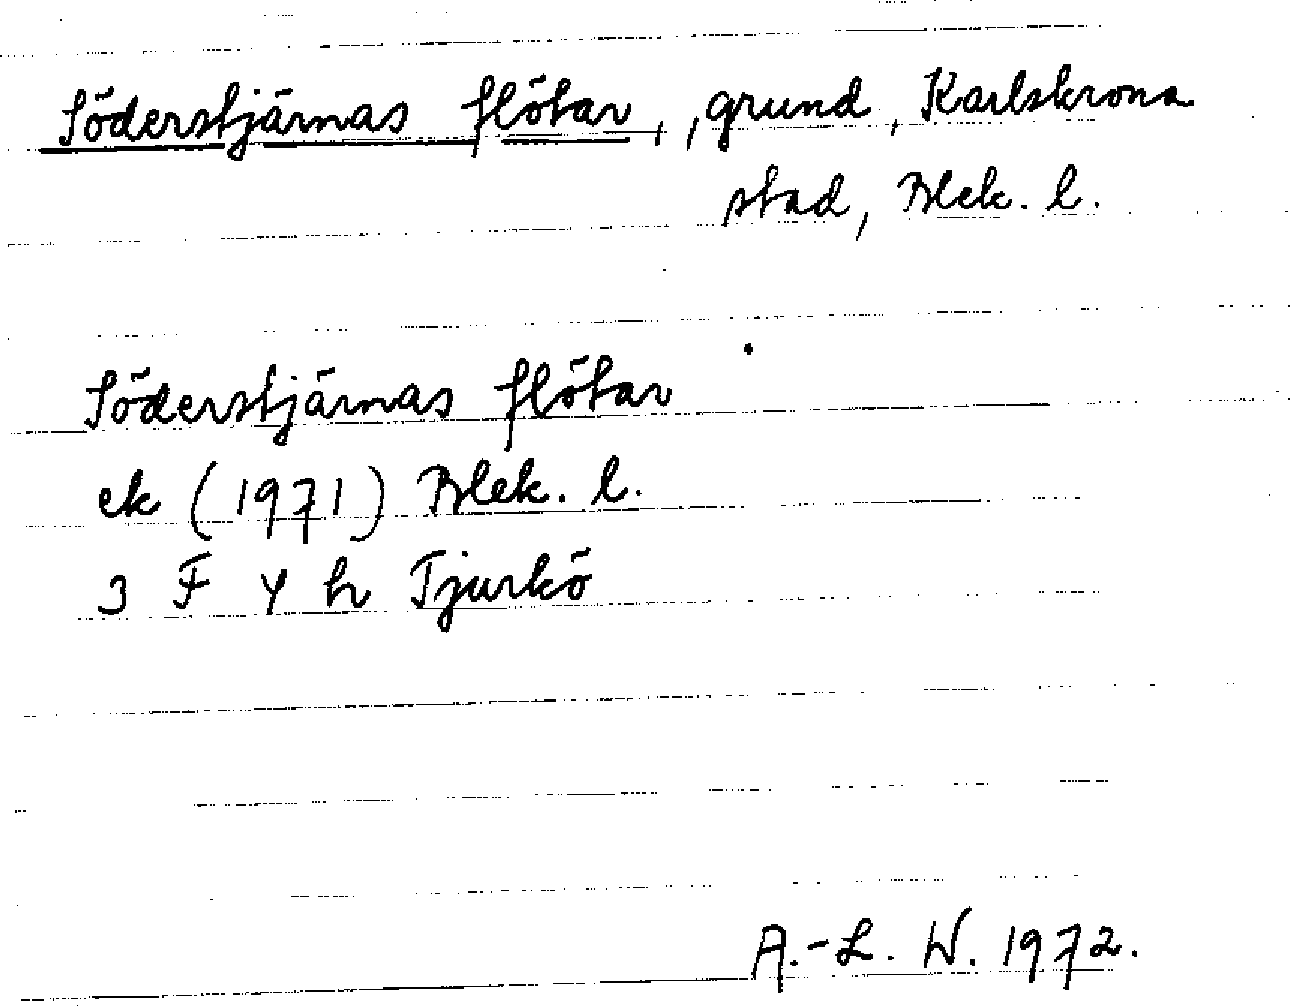 Söderstjärnas flötar, , grund, Karlskrona
stad, Blek. l.
Söderstjärnas flötar
ek (1971) Blek. l.
3 F Y h Tjurkö
A.-L. W. 1972.